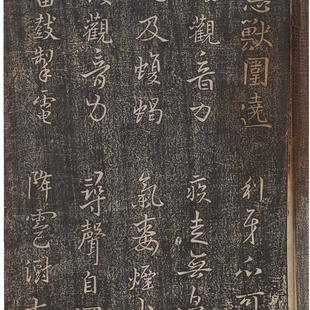 惡獸圍遶 利牙爪可
觀音力 疾走無邊
及蝮蝎 氣毒煙火
觀音力 尋聲自
雷鼓掣電 降雹澍大